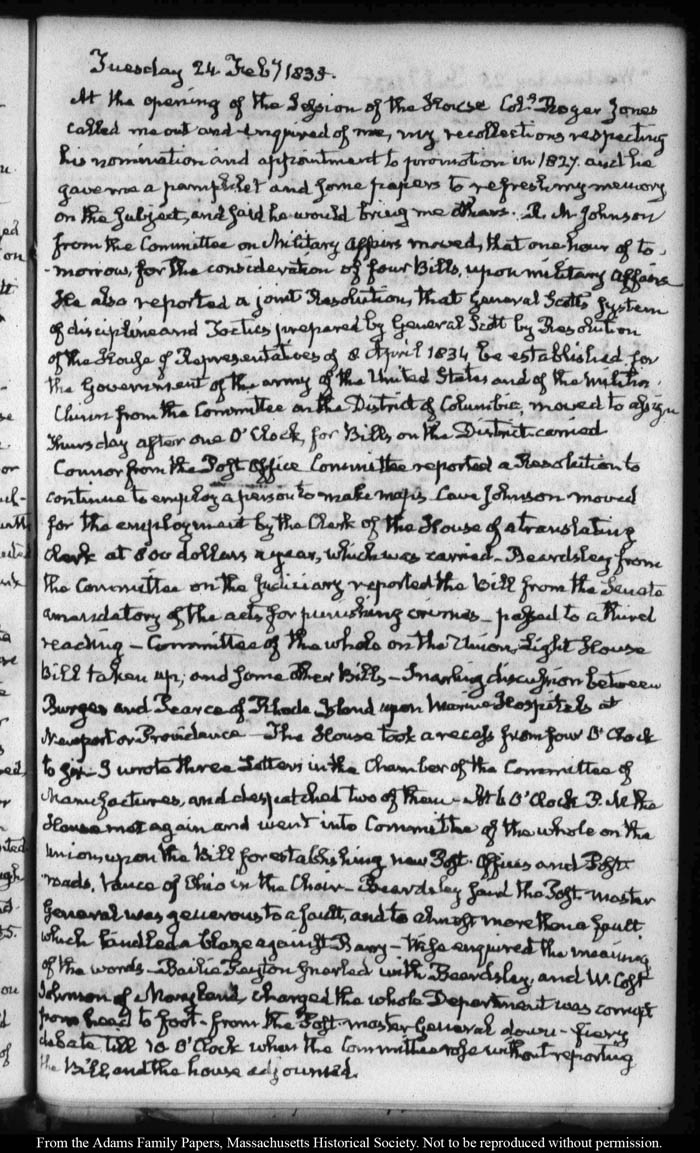 Tuesday 24. Feby 1835.
At the opening of the Session of the House Coll. Roger Jones
called me out and enquired of me, my recollections respecting
his nomination and appointment to promotion in 1827. and he
gave me a pamphlet and some papers to refresh my memory
on the subject, and said he would bring me others. R. M. Johnson
from the Committee on Military Affairs moved, that one hour of to-
-morrow, for the consideration of four Bills, upon military affairs
He also reported a joint Resolution, that General Scott's System
of discipline and Tactics prepared by General Scott by Resolution
of the House of Representatives of 8 April 1834 be established for
the Government of the army of the United States and of the militia.
Chinn from the Committee on the District of Columbia, moved to assign
Thursday after one O'Clock, for Bills, on the District carried
Connor from the Post Office Committee reported a Resolution to
continue to employ a person to make maps. Cave Johnson moved
for the employment by the Clerk of the House of a translating
Clerk at 800 dollars a year, which was carried – Beardsley from
the Committee on the Judiciary reported the Bill from the Senate
amendatory of the acts for punishing crimes – passed to a third
reading – Committee of the whole on the Union, Light House
bill taken up; and some other Bills – Snarling discussion between
Burges and Pearce of Rhode Island upon Marine Hospitals at
Newport or Providence – The House took a recess from four O'Clock
to six – I wrote three Letters in the Chamber of the Committee of
Manufactures, and despatched two of them – At 6 O'Clock P.M. the
House met again and went into Committee of the whole on the
Union, upon the Bill for establishing new Post-Offices and Post-
roads, Vance of Ohio in the Chair – Beardsley said the Post-master
General was generous to a fault, and to almost more than a fault
which kindled a blaze against Barry – Wise enquired the meaning
of the words – Bailie Peyton snarled with Beardsley, and W. Cost
Johnson of Maryland, charged the whole Department was corrupt
from head to foot – from the Post-master General down – fiery
debate till 10 O'Clock when the Committee rose without reporting
the Bill, and the house adjourned.
From the Adams Family Papers, Massachusetts Historical Society. Not to be reproduced without permission.